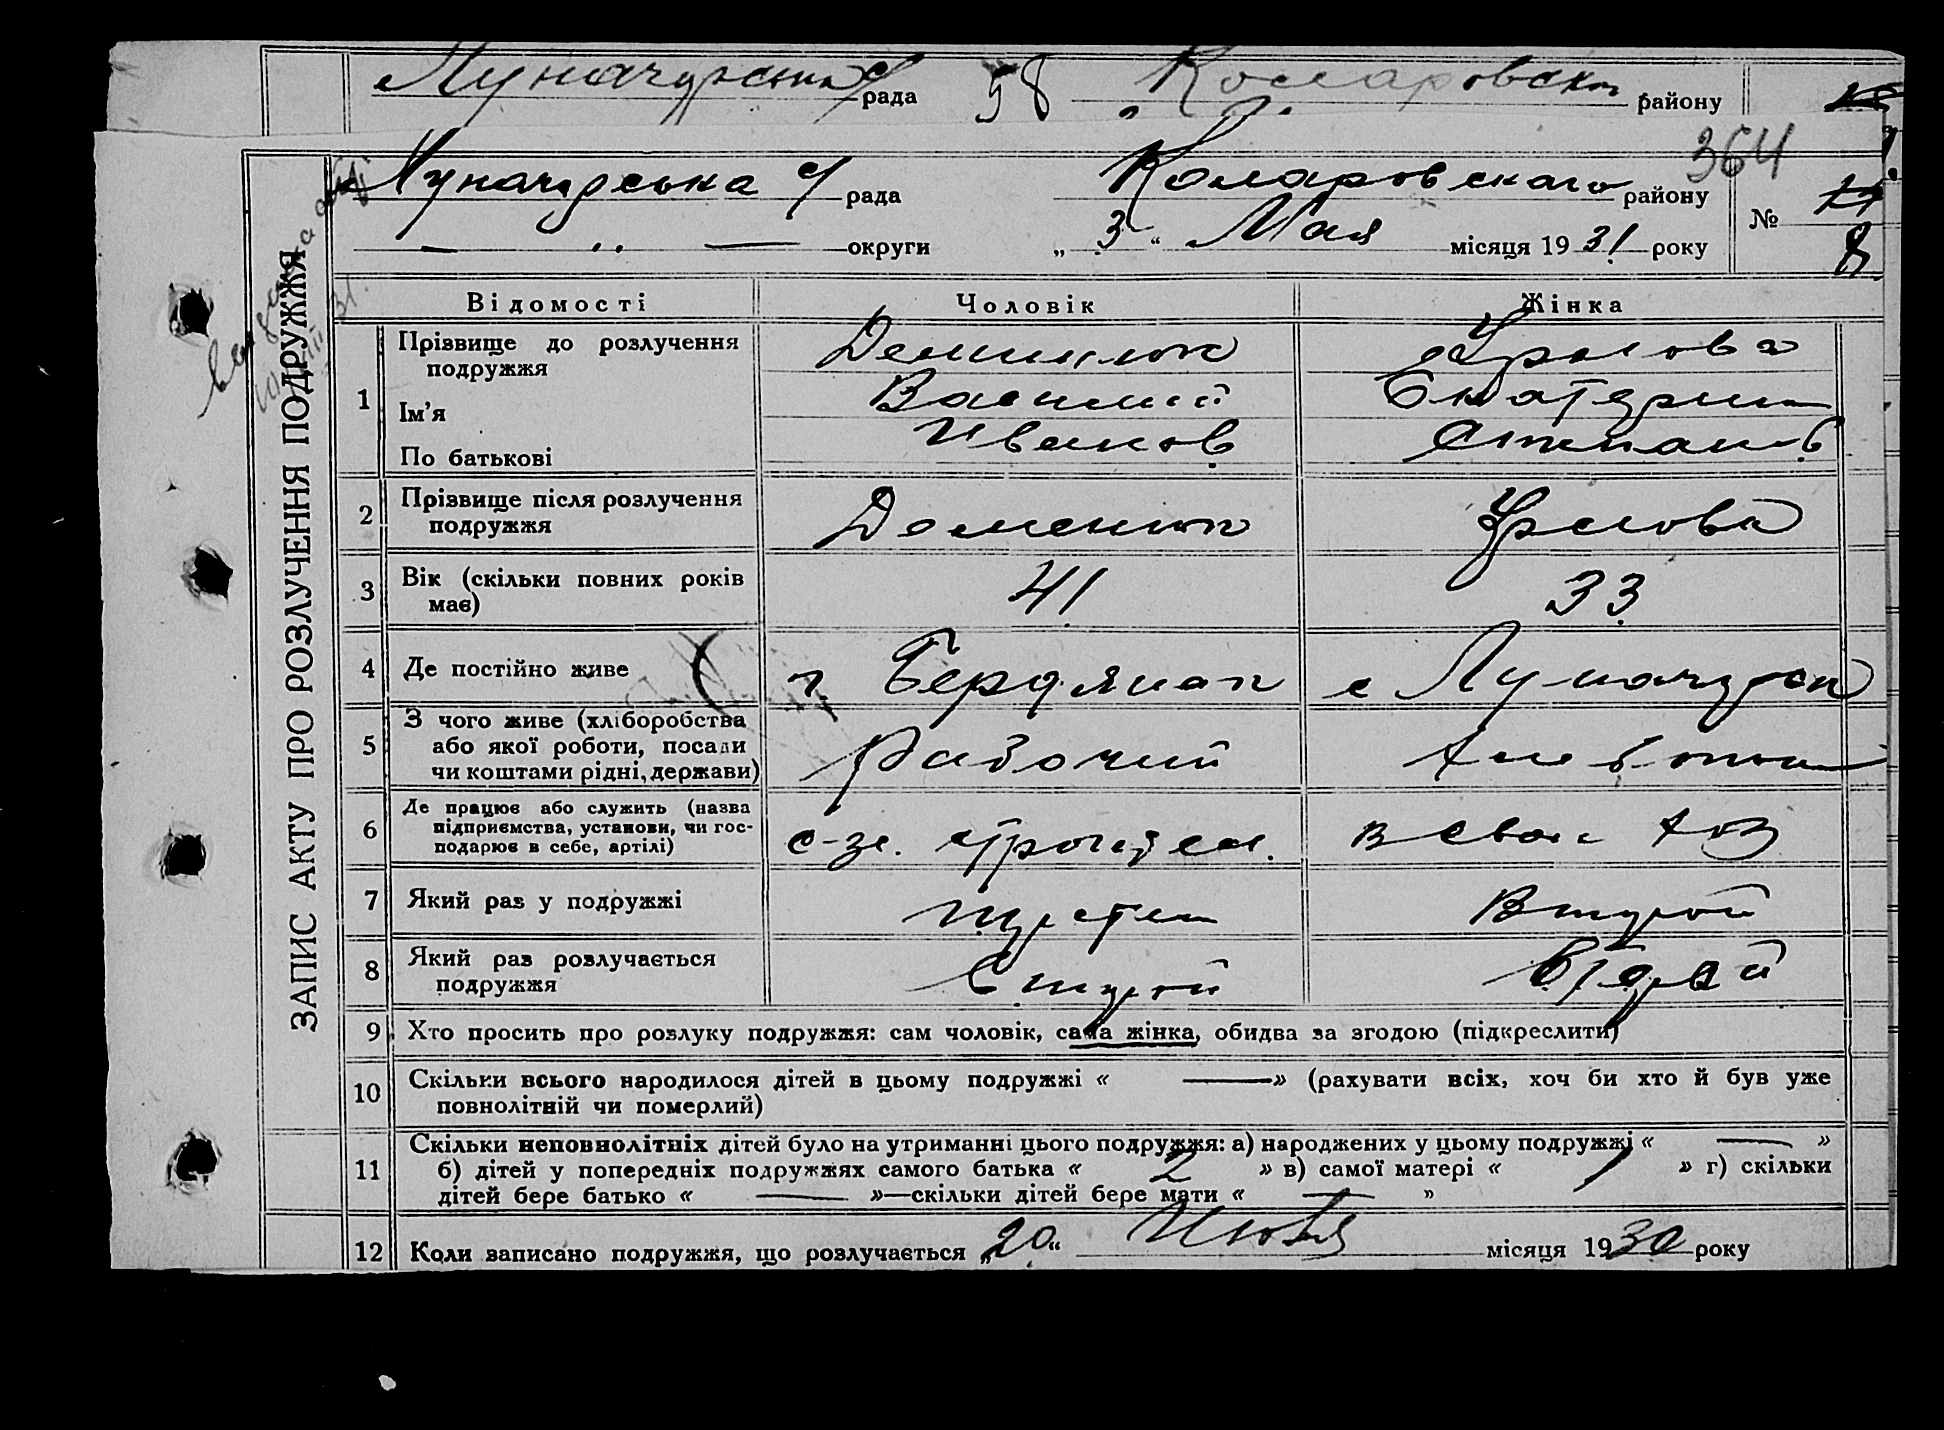 рада 58 району
364
рада Коларовскаго району
— „ — округи „ 3 “ Мая місяця 1931 року № 8
ЗАПИС АКТУ ПРО РОЗЛУЧЕННЯ ПОДРУЖЖЯ
Відомості Чоловік Жінка
1 Прізвище до розлучення
подружжя
Ім'я Василий Екатерина
По батькові Иванов Степанов
2 Прізвище після розлучення
подружжя Деменюк
3 Вік (скільки повних років
має) 41 33
4 Де постійно живе г. Бердянск с
5 З чого живе (хліборобства
або якої роботи, посади
чи коштами рідні, держави) Рабочий
6 Де працює або служить (назва
підприємства, установи, чи гос-
подарює в себе, артілі)
7 Який раз у подружжі Второй
8 Який раз розлучається
подружжя Второй Второй
9 Хто просить про розлуку подружжя: сам чоловік, сама жінка, обидва за згодою (підкреслити)
10 Скільки всього народилося дітей в цьому подружжі « —» (рахувати всіх, хоч би хто й був уже
повнолітній чи померлий)
11 Скільки неповнолітніх дітей було на утриманні цього подружжя: а) народжених у цьому подружжі « — »
б) дітей у попередніх подружжях самого батька « 2 » в) самої матері « 1 » г) скільки
дітей бере батько « — »—скільки дітей бере мати « — »
12 Коли записано подружжя, що розлучається „20“ місяця 1930 року